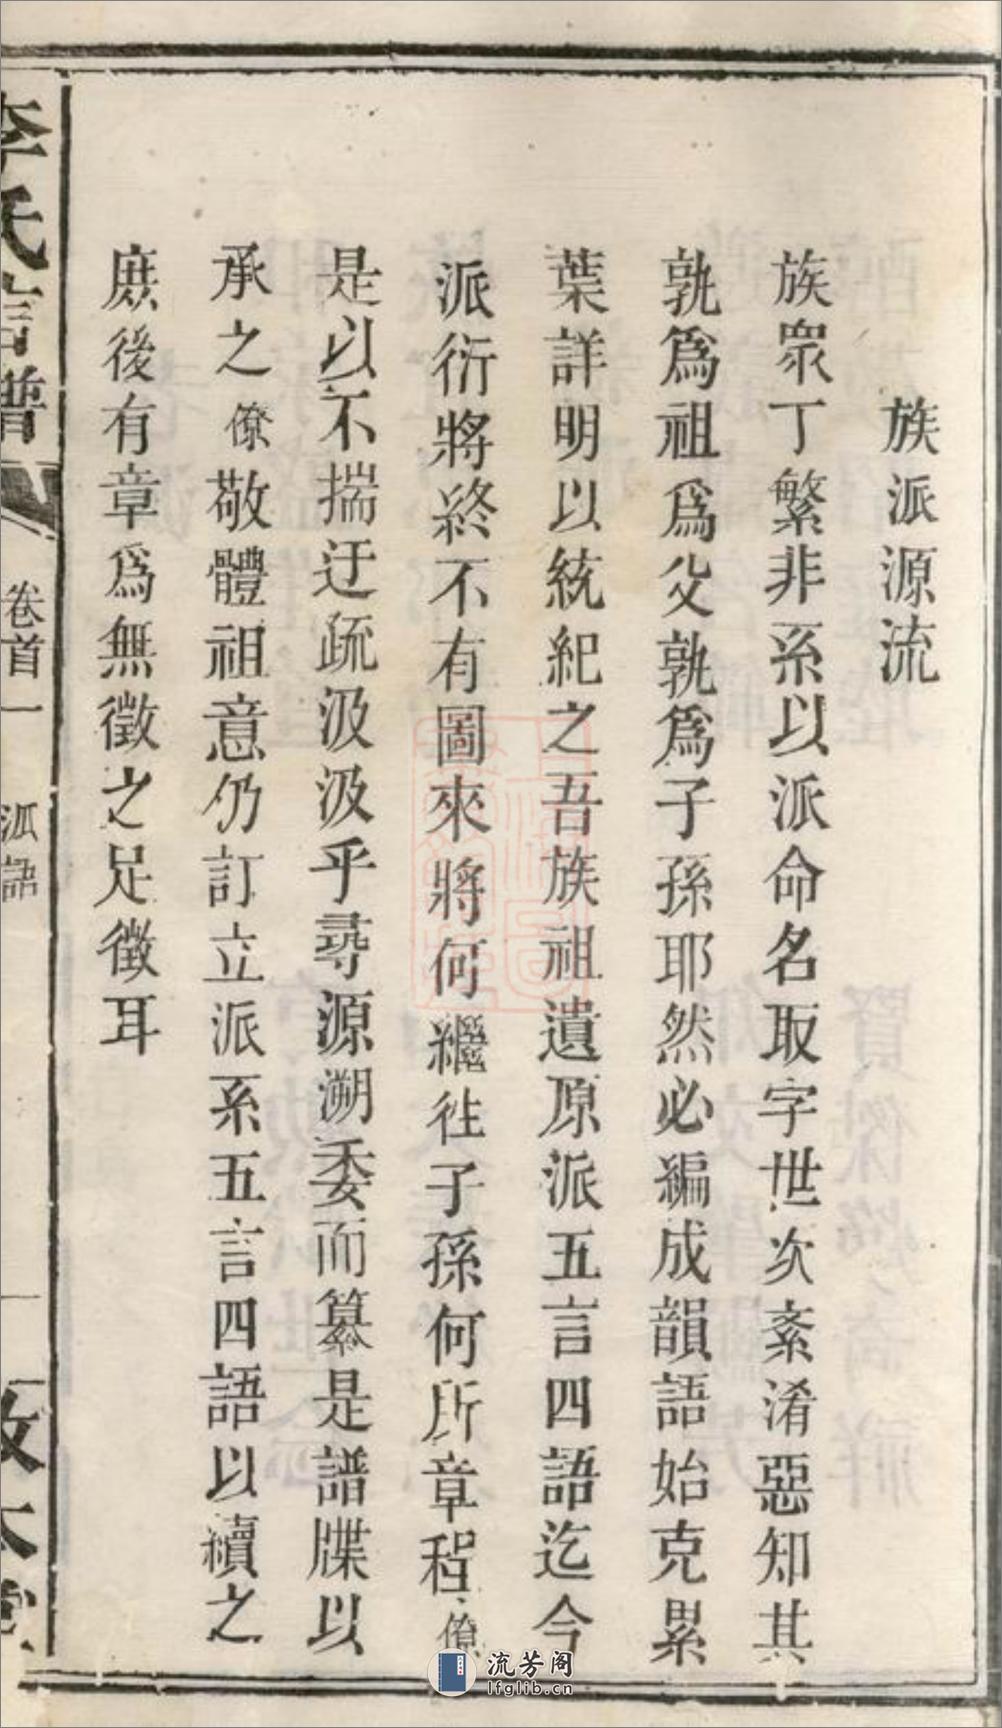 族派源流
族眾丁繁非系以派命名取字世次紊淆惡知其
孰爲祖爲父孰爲子孫耶然必編成韻語始克累
葉詳明以統紀之吾族祖遺原派五言四語迄今
派衍將終不有圖來將何繼徃子孫何所章程僚
是以不揣迂疏汲汲乎尋源溯委而纂是譜牒以
承之僚敬體祖意仍訂立派系五言四語以續之
庶後有章爲無徵之足徵耳
李氏宗譜
卷首一
派語
敦本堂
流芳阁
lfglib.cn